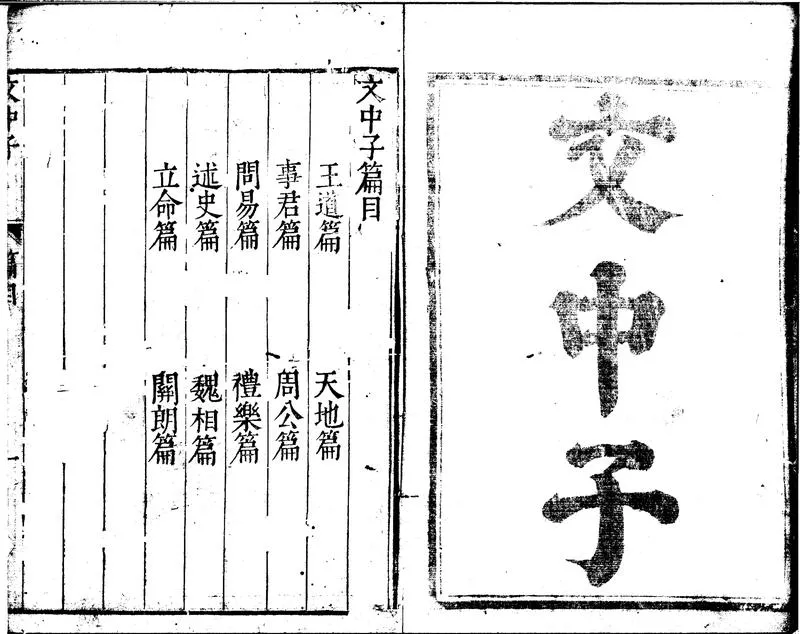 文中子
文中子篇目
王道篇　天地篇
事君篇　周公篇
問易篇　禮樂篇
述史篇　魏相篇
立命篇　關朗篇
文中子　篇目　一